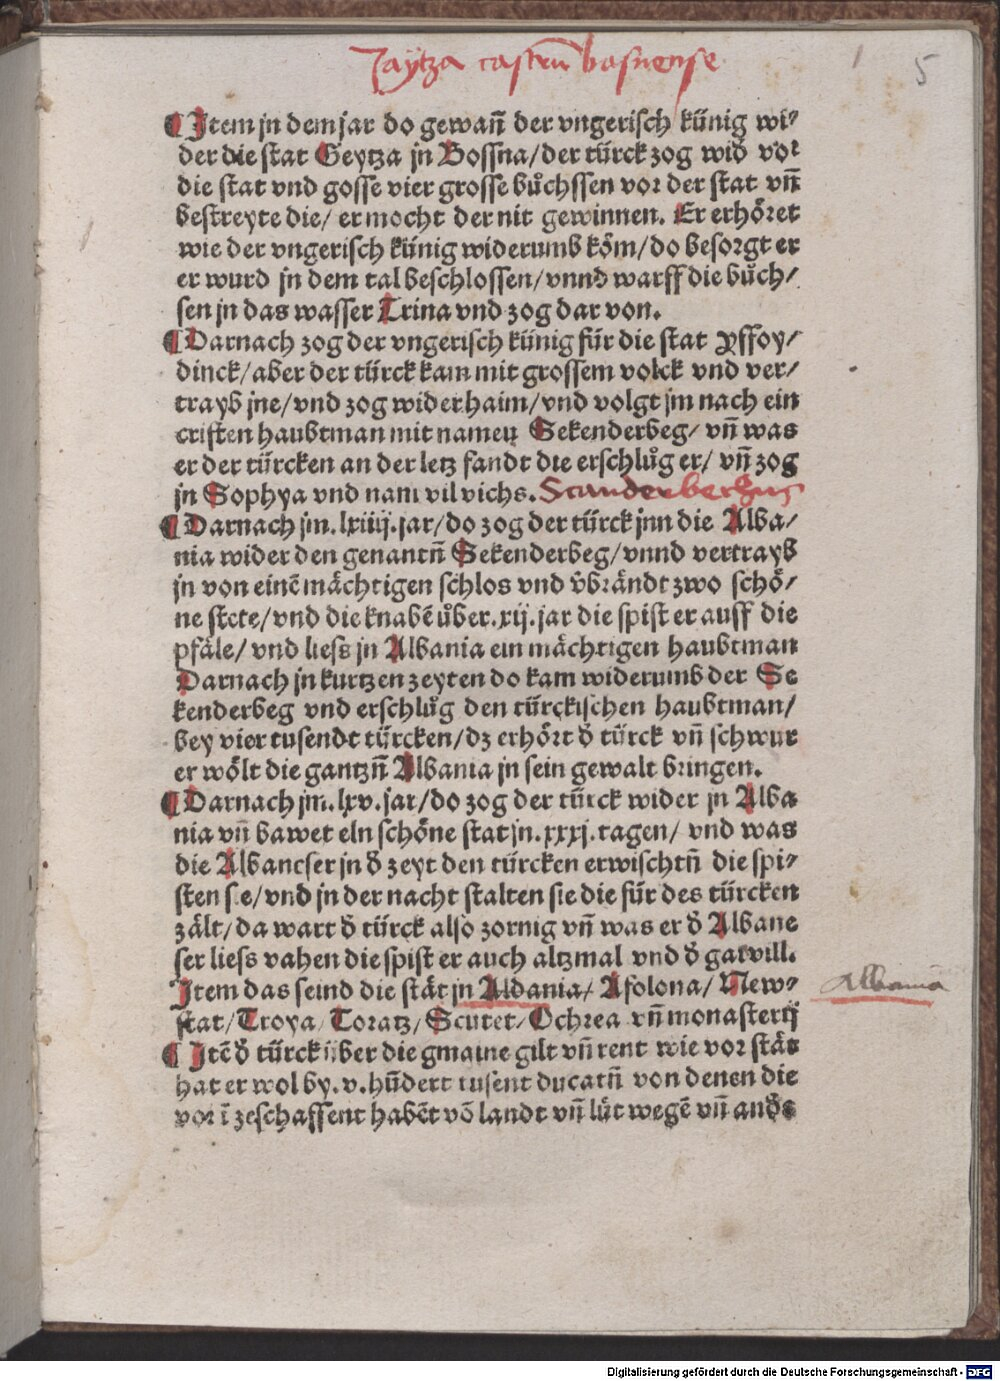 Jaÿtza castrū bosnense
5
¶ Item jn dem jar do gewañ der vngerisch künig wi⸗
der die stat Geytza jn Bossna/der türck zog wid vor
die stat vnd gosse vier grosse bůchssen vor der stat vñ
bestreyte die/ er mocht der nit gewinnen. Er erhöret
wie der vngerisch künig widerumb köm/do besorgt er
er wurd jn dem tal beschlossen/vnnd warff die bůch/
sen jn das wasser Trina vnd zog dar von.
¶ Darnach zog der vngerisch künig für die stat
dinck/aber der türck kam mit grossem volck vnd ver/
trayb jne/vnd zog wider haim/vnd volgt jm nach ein
cristen haubtman mit namen Sekenderbeg/ vñ was
er der türcken an der letz fandt die erschlůg er/ vñ zog
jn Sophya vnd nam vil vichs. Scanderbechus
¶ Darnach jm .lxiiij. jar/do zog der türck jnn die Alba/
nia wider den genantñ Sekenderbeg/vnnd vertrayb
jn von einē mächtigen schlos vnd v̊brändt zwo schö/
ne stete/vnd die knabē ůber .xij. jar die spist er auff die
pfäle/ vnd liess jn Albania ein mächtigen haubtman
Darnach jn kurtzen zeyten do kam widerumb der Se
kenderbeg vnd erschlůg den türckischen haubtman/
bey vier tusendt türcken/dz erhört d̕ türck vñ schwur
er wölt die gantzñ Albania jn sein gewalt bringen.
¶ Darnach jm .lxv. jar/do zog der türck wider jn Alba
nia vñ bawet ein schöne stat jn .xxxj. tagen/ vnd was
die Albaneser jn d̕ zeyt den türcken erwischtñ die spi⸗
sten sie/vnd jn der nacht stalten sie die für des türcken
zält/da wart d̕ türck also zornig vñ was er d̕ Albane
ser liess vahen die spist er auch altzmal vnd d̕ gar vill.
Item das seind die stät jn Albania/ Afolona/ New⸗
stat/ Troya/ Toratz/ Scutet/ Ochrea vñ monasterij
Albania
¶ Itē d̕ türck über die gmaine gilt vñ rent wie vor stät
hat er wol by .v. hūdert tusent ducatñ von denen die
vor ī zeschaffent habēt vō landt vñ lüt wegē vñ and̕e
Digitalisierung gefördert durch die Deutsche Forschungsgemeinschaft - DFG